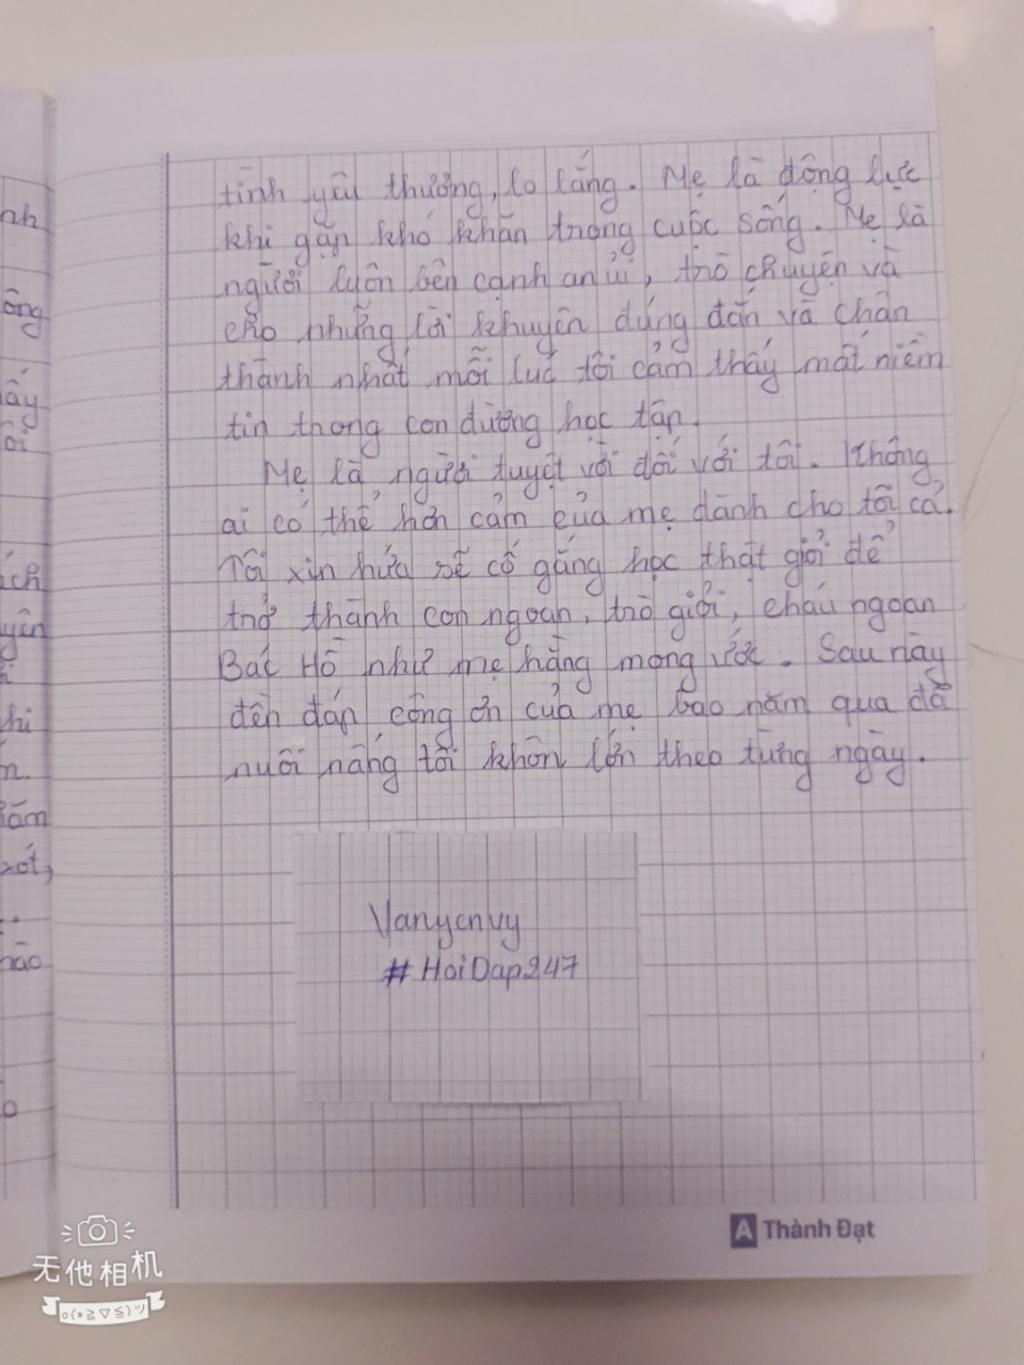 nh
ông
ấy
ôi
ích
yên
i
hi
n.
lắm
xót,
hào
o
tình yêu thương, lo lắng. Mẹ là động lực
khi gặp khó khăn trong cuộc sống. Mẹ là
người luôn bên cạnh an ủi, trò chuyện và
cho những lời khuyên đúng đắn và chân
thành nhất mỗi lúc tôi cảm thấy mất niềm
tin thong con đường học tập.
Mẹ là người tuyệt vời đối với tôi. Không
ai có thể hơn cảm của mẹ dành cho tôi cả.
Tôi xin hứa sẽ cố gắng học thật giỏi để
trở thành con ngoan, trò giỏi, cháu ngoan
Bác Hồ như mẹ hằng mong ước. Sau này
đền đáp công ơn của mẹ bao năm qua đã
nuôi nấng tôi khôn lớn theo từng ngày.
Vanycnvy
#HoiDap247
A Thành Đạt
无他相机
o(*≧▽≦)ツ